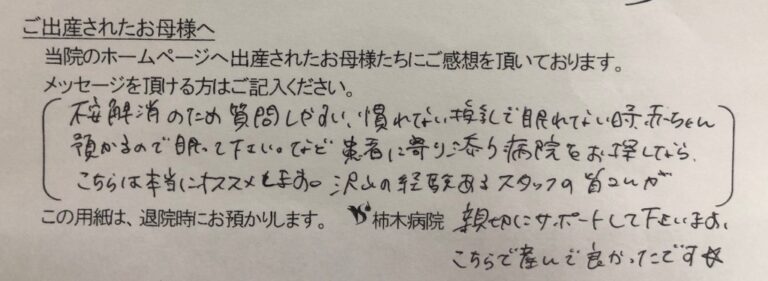 ご出産されたお母様へ
当院のホームページへ出産されたお母様たちにご感想を頂いております。
メッセージを頂ける方はご記入ください。
不安解消のため質問しやすい、慣れない授乳で眠れない時、赤ちゃん
預かるので眠って下さい。など患者に寄り添う病院をお探しなら、
こちらは本当にオススメします。沢山の経験あるスタッフの皆さんが
この用紙は、退院時にお預かりします。 柿木病院 親切にサポートして下さいます。
こちらで産んで良かったです☆